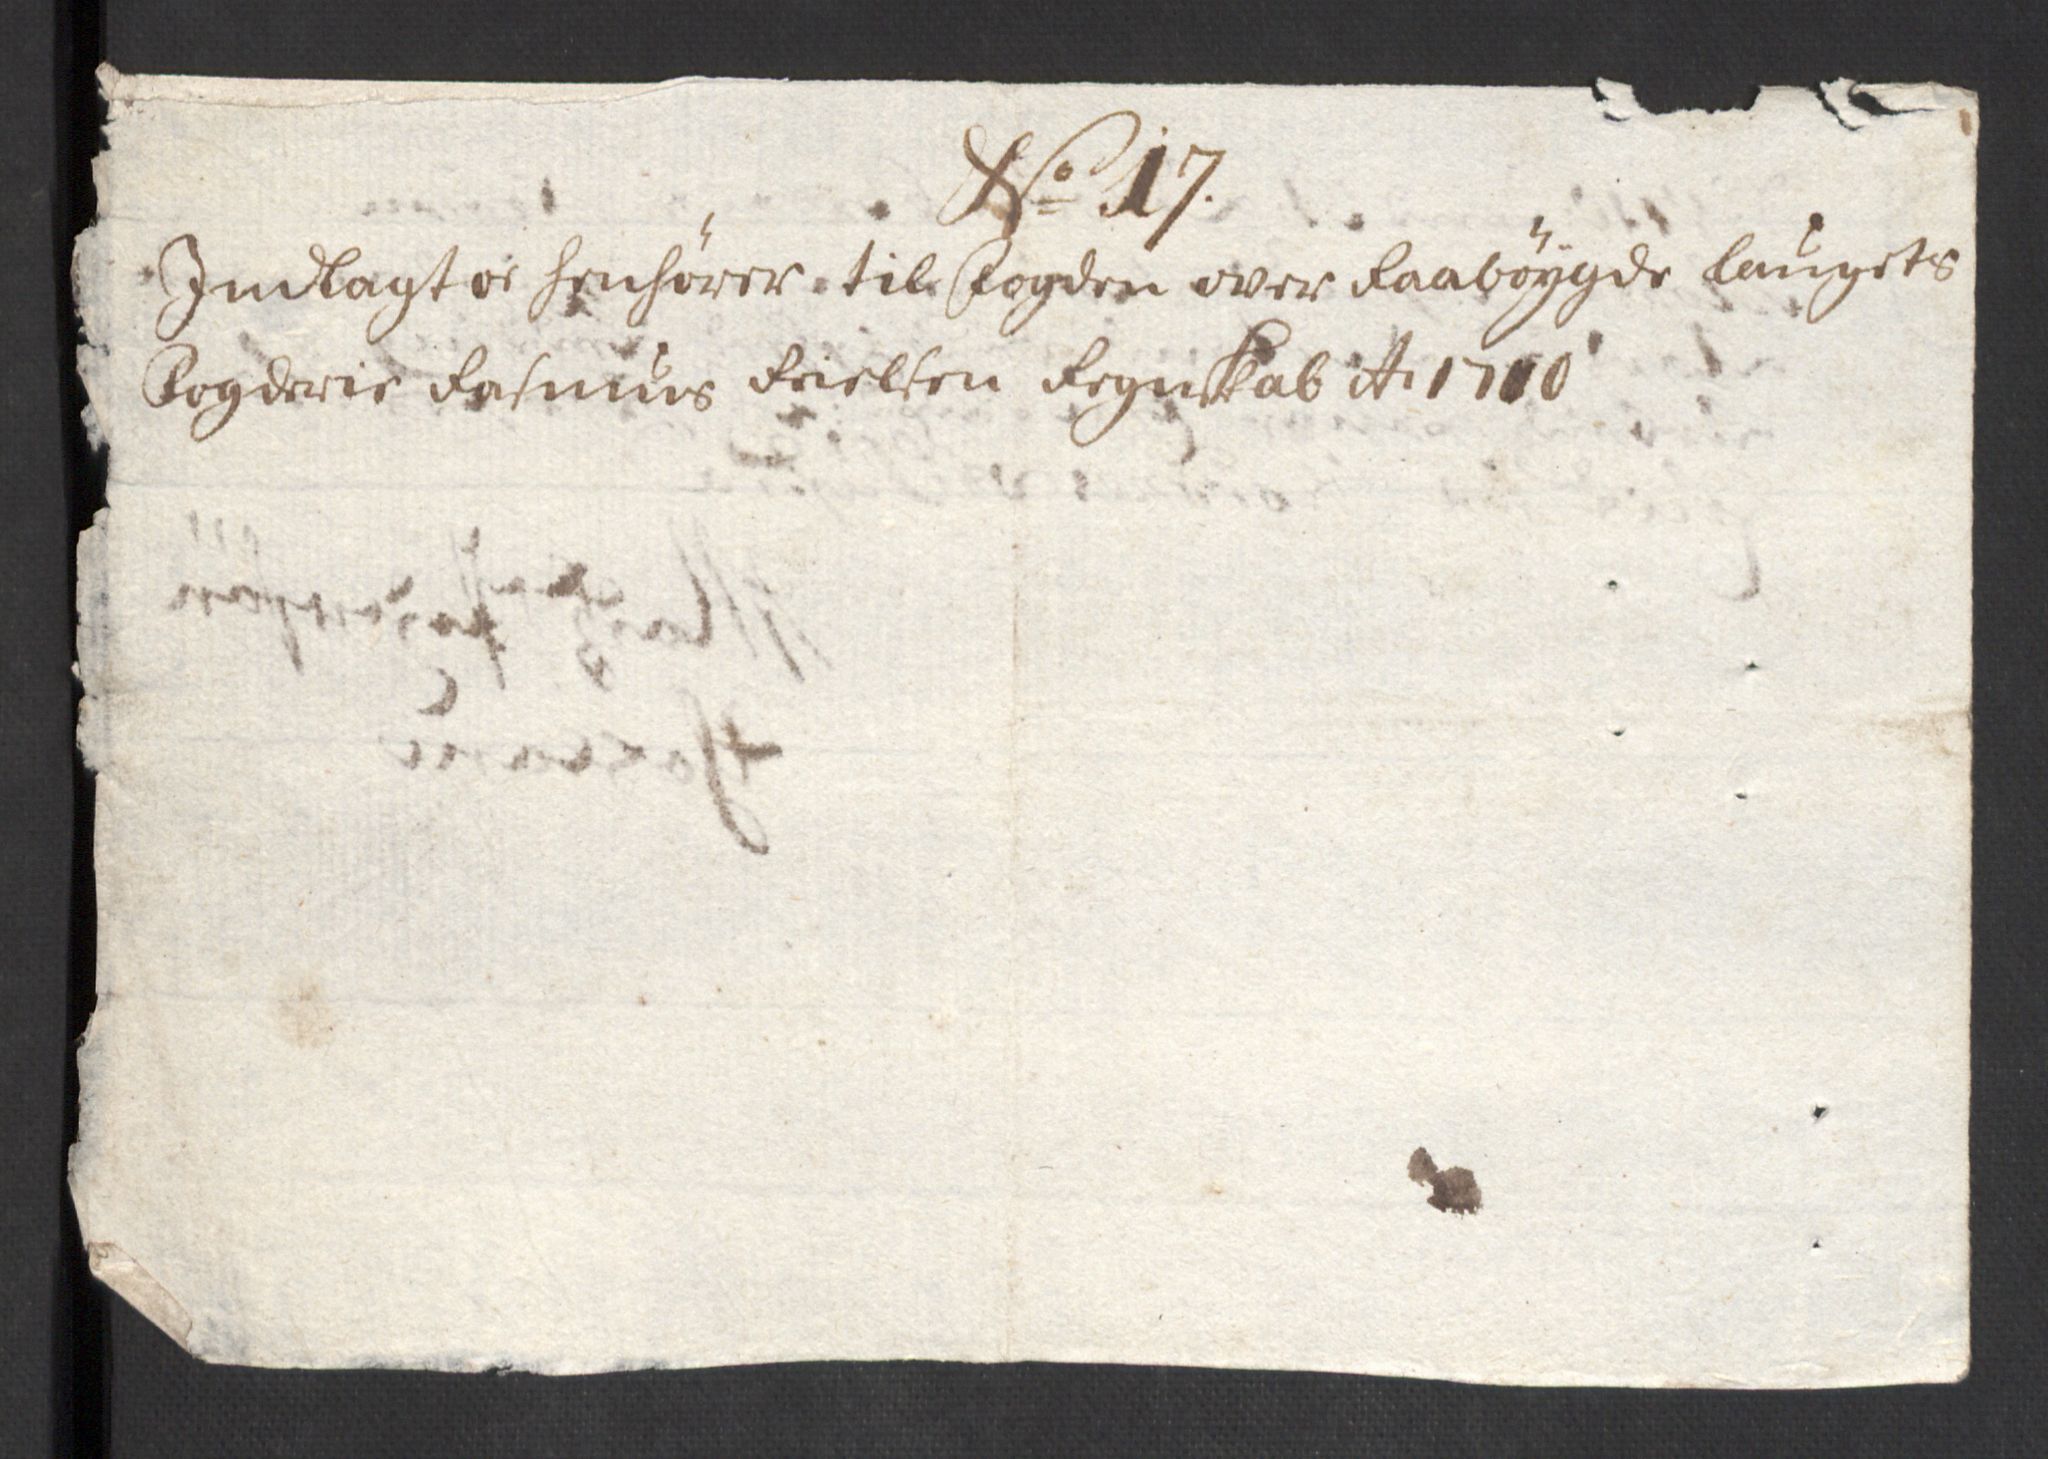 No 17.
Indlagt oc henhører til Fogden over Raabøygde laugets
Fogderie Rasmus Nielsen Regnskab A: 1710